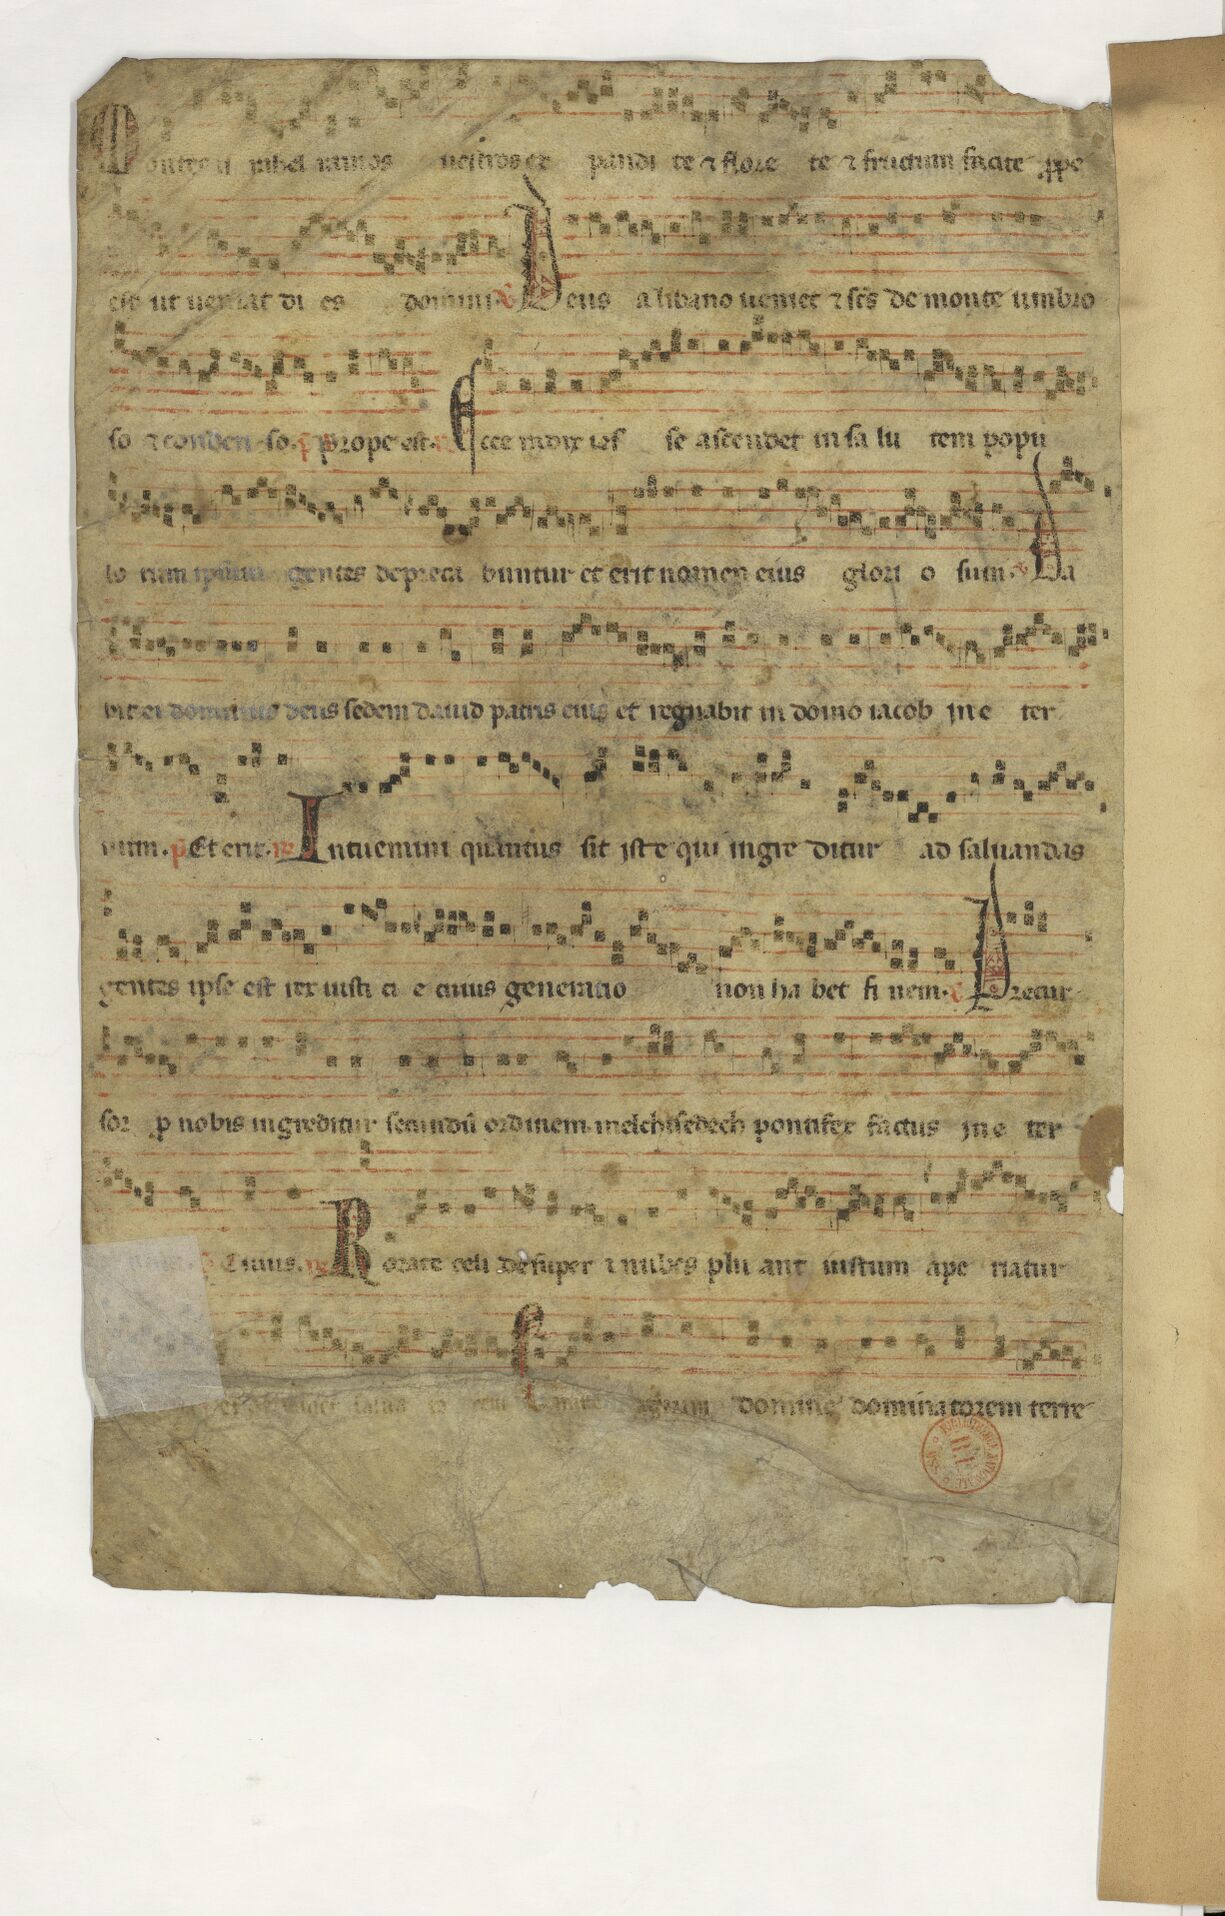 Montes israhel ramos vestros ex pandi te ⁊ flore te ⁊ fructum facite ꝓpe
est ut veniat di es domini. ℣ Deus a libano veniet ⁊ scs̄ de monte umbro
so ⁊ conden so. p̄ Prope est. Ecce radix ies se ascendet in sa lu tem popu
lo rum ipsum gentes depreca buntur et erit nomen eius glori o sum. ℣ Da
bit ei dominus deus sedem dauid patris eius et regnabit in domo iacob in e ter
num. p̄ Et erit. ℟ Intuemini quantus sit iste qui ingre ditur ad saluandas
gentes ipse est rex iusti ci e cuius generatio non ha bet fi nem. ℣ Precur
sor p nobis ingreditur secundū ordinem melchisedech pontifex factus in e ter
p̄ Cuius. ℟ Rorate celi desuper ⁊ nubes plu ant iustum ape riatur
et salua to rem Emitte agnum domine dominatorem terre
BIBLIOTHEQUE NATIONALE MSS